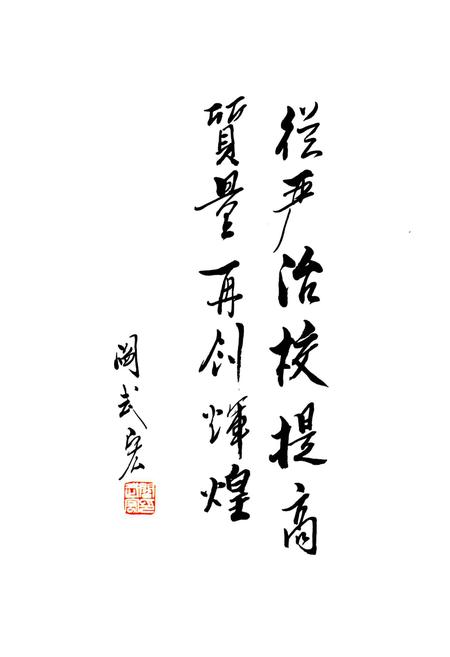 從严治校提高
質量再创輝煌
武宏